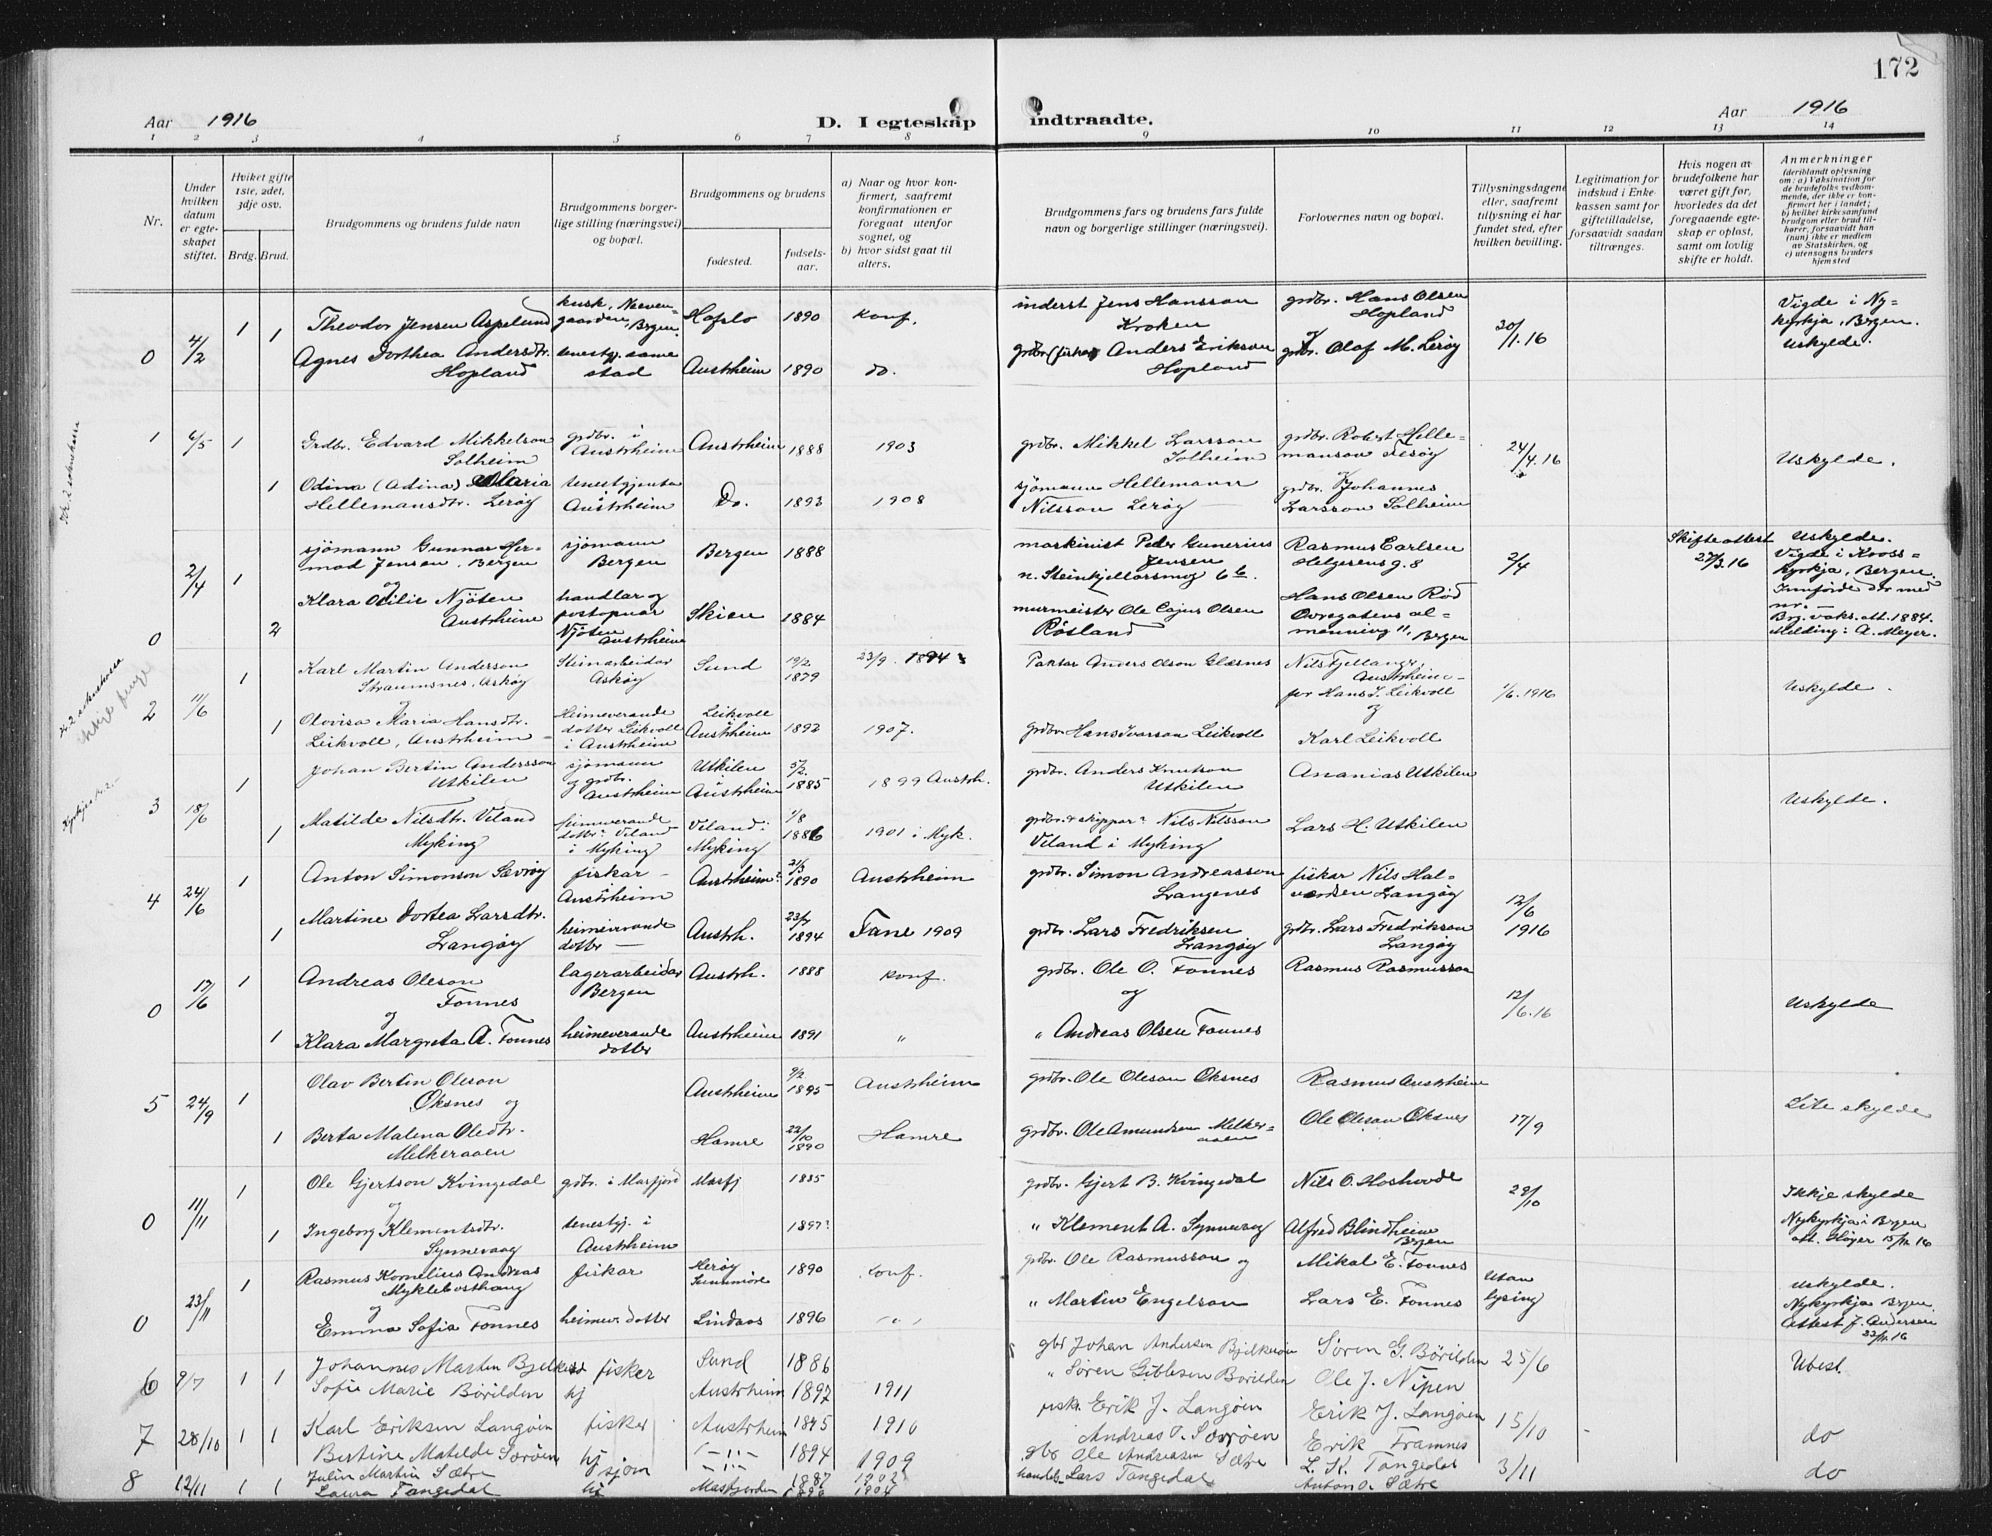 172
Aar 1916
D. I egteskap indtraadte.
Aar 1916
1 2 3 4 5 6 7 8 9 10 11 12 13 14
Nr.
Under hvilken datum er egteskapet stiftet.
Hvilket gifte 1ste, 2det, 3dje osv.
Brdg. Brud.
Brudgommens og brudens fulde navn
Brudgommens borgerlige stilling (næringsvei) og bopæl.
Brudgommens og brudens
fødested.
fødselsaar.
a) Naar og hvor konfirmert, saafremt konfirmationen er foregaat utenfor sognet, og
b) hvor sidst gaat til alters.
Brudgommens fars og brudens fars fulde navn og borgerlige stillinger (næringsvei).
Forlovernes navn og bopæl.
Tillysningsdagene eller, saafremt tillysning ei har fundet sted, efter hvilken bevilling.
Legitimation for indskud i Enkekassen samt for giftetilladelse, forsaavidt saadan tiltrænges.
Hvis nogen av brudefolkene har været gift før, hvorledes da det foregaaende egteskap er opløst, samt om lovlig skifte er holdt.
Anmerkninger
(deriblandt oplysning om: a) Vaksination for de brudefolks vedkommende, der ikke er konfirmert her i landet; b) hvilket kirkesamfund brudgom eller brud tilhører, forsaavidt han (hun) ikke er medlem av Statskirken, og c) utensogns bruders hjemsted
0 4/2 1 Theodor Jensen Aspelund kusk, Nerven-gaarden, Brgen. Hafslo 1890 konf. inderst Jens Hansson Kroken grdbr. Hans Olsen Hopland 30/1.16 Vigde i Nykyrkja, Bergen. uskylde.
1 Agnes Dorthea Andersdtr. Hopland tenestgj. same stad Austrheim 1890 do. grdbr. (fiskar) Anders Erikson Hopland og grdbr. Olaf M. Lerøy
1 6/5 1 Grdbr. Edvard Mikkelson Solheim grdbr. i Austrheim Austrheim 1888 1903 grdbr. Mikkel Larsson Solheim grdbr. Robert Hellemanson Lerøy 24/4.16 Uskylde.
1 Odina (Adina) Maria Hellemansdtr. Lerøy tenestgjenta Austrheim Do. 1893 1908 sjömann Hellemann Nilsson Lerøy grdbr. Johannes Larsson Solheim
0 2/4 1 sjömann Gunnar Hermod Jensen, Bergen sjömann Bergen Bergen 1888 maskinist Peder Gunerius Jensen n. Steinkjellersmog 6b. Rasmus Carlsen Helgesens g. 8 2/4 Skifteattest 27/3.16 Uskylde. Vigde i Krosskyrkja, Bergen. Innförde der med nr. — Brg. vaks. att. 1884. Melding: A. Meyer.
og
2 Klara Otilie Njöten Austrheim handlar og postopnar Njöten Austrheim Skien 1884 murmeister Ole Cajus Olsen Rösland Hans Olsen Röd Ovregatens almenning 11, Bergen
2 11/6 1 Karl Martin Anderson Straumsnes, Askøy Steinarbeidar Askøy Sund 19/2 1879 23/9 1894 Partar Anders Olson Glesnes Nils Fjellanger, Austrheim for Hans I. Leikvoll 1/6.1916 Uskylde.
og
1 Olovisa Maria Hansdtr. Leikvoll, Austrheim Heimeverande dotter Leikvoll i Austrheim Leikvoll Austrheim 1892 1907. grdbr. Hans Ivarson Leikvoll og Karl Leikvoll
3 18/6 1 Johan Bertin Andersson Utkilen sjömann og grdbr. Austrheim Utkilen i Austrheim 5/2. 1885 1899 Austrh. grdbr. Anders Knutson Utkilen Ananias Utkilen Uskylde.
1 Matilde Nilsdtr. Viland Myking heimeverande dotter Viland i Myking Viland i Myking 1/8 1886 1901 i Myk. grdbr. & skippar Nils Nilsson Viland i Myking Lars H. Utkilen
4 24/6 1 Anton Simonson Sævrøy fiskar Austrheim Austrheim 21/3 1890 Austrheim grdbr. Simon Andreasson Langenes fiskar Nils Halvordsen Langøy 12/6 1916
1 Martine Dortea Larsdtr. Langøy heimeverande dotter Austrh. 23/7 1894 Fane 1909 grdbr. Lars Fredriksen Langøy grdbr. Lars Fredrikson Langøy
0 17/6 1 Andreas Oleson Fonnes lagerarbeidar Bergen Austrh. 1888 konf. grdbr. Ole O. Fonnes Rasmus Rasmusson 12/6.16 Uskylde
og og
1 Klara Margreta A. Fonnes heimeverande dotter Austrheim 1891 " " Andreas Olsen Fonnes
5 24/9 1 Olav Bertin Oleson Øksnes og Austrheim 9/2 1895 Austrheim grdbr. Ole Oleson Øksnes Rasmus Austrheim 17/9 Lite skylde
1 Berta Malena Oledtr. Melkeraaen Hamre 22/10 1890 Hamre grdbr. Ole Amundsen Melkeraaen Ole Oleson Øksnes
0 11/11 1 Ole Gjertson Kvingedal grdbr. i Masfjord Masfj 1885 grdbr. Gjert B. Kvingedal Nils O. Hoshovde 29/10 Ikkje skylde
og
1 Ingeborg Klementsdtr. Synnevaag tenestgj. i Austrheim 1897 " Klement A. Synnevaag Alfred Blindheim Brgen Nykyrkja i Brgen att. Høyer 15/11.16
0 23/11 1 Rasmus Kornelius Andreas Myklebosthaug fiskar Herøy Sunnmöre 1890 konf. grdbr. Ole Rasmusson og Mikal E. Fonnes Utan lysing uskylde.
og
Emma Sofia Fonnes heimev. dotter Lindaas 1896 " " Martin Engelson Lars E. Fonnes Nykyrkja Brgen. Attest J. Andersen 23/11.16
6 9/7 1 1 Johannes Martin fisker Sund 1886 gbr Johan Andersen Bjelkerøen Søren G Børilden 25/6 Ubesl.
Sofie Marie Børilden hj Austrheim 1897 1911 " Søren Giblesen Børilden Ole J. Nipen
7 28/10 1 1 Karl Eriksen Langøen fisker Austrheim 1895 1910 Erik J. Langøen Erik J. Langøen 15/10 do
Bertine Matilde Sørøen hj -"- 1894 1909 Andreas P. Sørøen Erik Framnes
8 12/11 1 1 Julin Martin Sætre sjøm -"- 1887 1902 gbr Ole Andreasen Sætre L. K. Tangedal 3/11 do
Laura Tangedal hj Masfjorden 1890 1904 handels. Lars Tangedal Anton O. Sætre
Kr. 2 enkekassa
Kr. 2 enkekassa
ikkje penge
Kyrkja kr 2.-